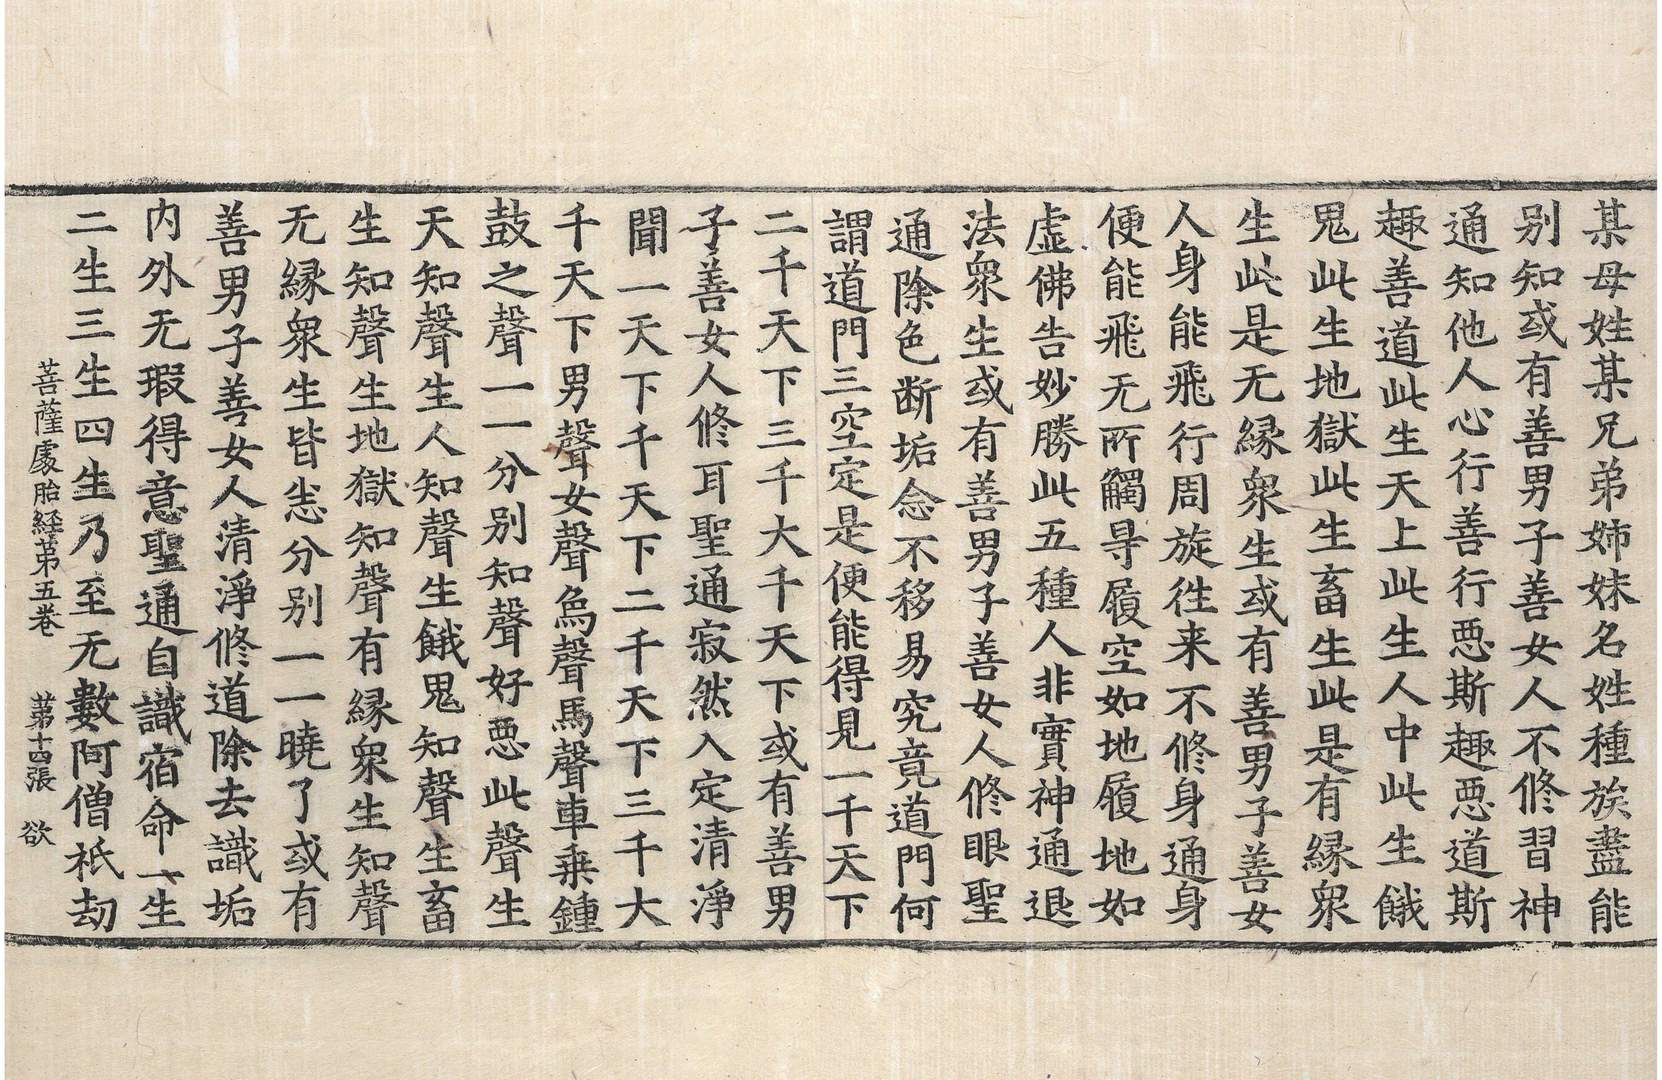 某母姓某兄弟姉妹名姓種族盡能
别知或有善男子善女人不修習神
通知他人心行善行悪斯趣悪道斯
趣善道此生天上此生人中此生餓
鬼此生地獄此生畜生此是有縁衆
生此是无縁衆生或有善男子善女
人身能飛行周旋往来不修身通身
便能飛无所觸㝵履空如地履地如
虚佛告妙勝此五種人非實神通退
法衆生或有善男子善女人修眼聖
通除色断垢念不移易究竟道門何
謂道門三空定是便能得見一千天下
二千天下三千大千天下或有善男
子善女人修耳聖通寂然入定清淨
聞一天下千天下二千天下三千大
千天下男聲女聲鳥聲馬聲車乗鍾
鼓之聲一一分别知聲好悪此聲生
天知聲生人知聲生餓鬼知聲生畜
生知聲生地獄知聲有縁衆生知聲
无縁衆生皆悉分别一一曉了或有
善男子善女人清淨修道除去識垢
内外无瑕得意聖通自識宿命一生
二生三生四生乃至无數阿僧祇劫
菩薩處胎経苐五巻 苐十四張 欲